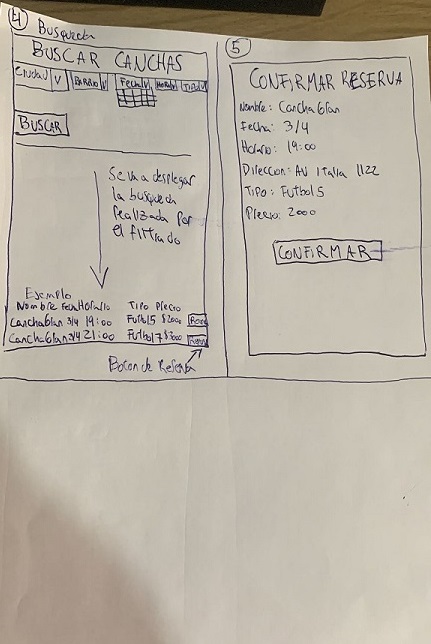 4 Busqueda
BUSCAR CANCHAS
Ciudad V BARRIO V Fecha V HORA V TIPO V
BUSCAR
Se va a desplegar
la busqueda
realizada por
el filtrado
Ejemplo
Nombre Fecha Horario Tipo Precio
Cancha6lan 3/4 19:00 Futbol5 $2000
Cancha6lan 3/4 21:00 Futbol7 $3000
Boton de Reserva
5
CONFIRMAR RESERVA
Nombre: Cancha6lan
Fecha: 3/4
Horario: 19:00
Direccion: AV Italia 1122
Tipo: Futbol5
Precio: 2000
CONFIRMAR